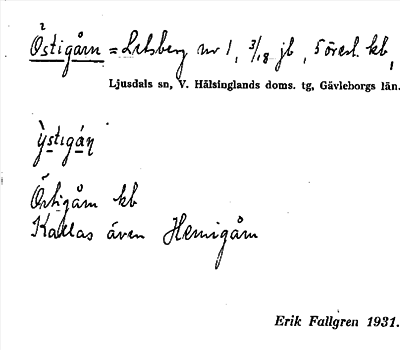 Östigårn = Letsberg nr 1, 3/18 jb, 5 öresl. kb,
Ljusdals sn, V. Hälsinglands doms. tg, Gävleborgs län.
Östigårn kb
Kallas även Hemigårn
Erik Fallgren 1931.